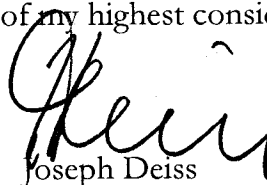 of my highest consid
Joseph Deiss